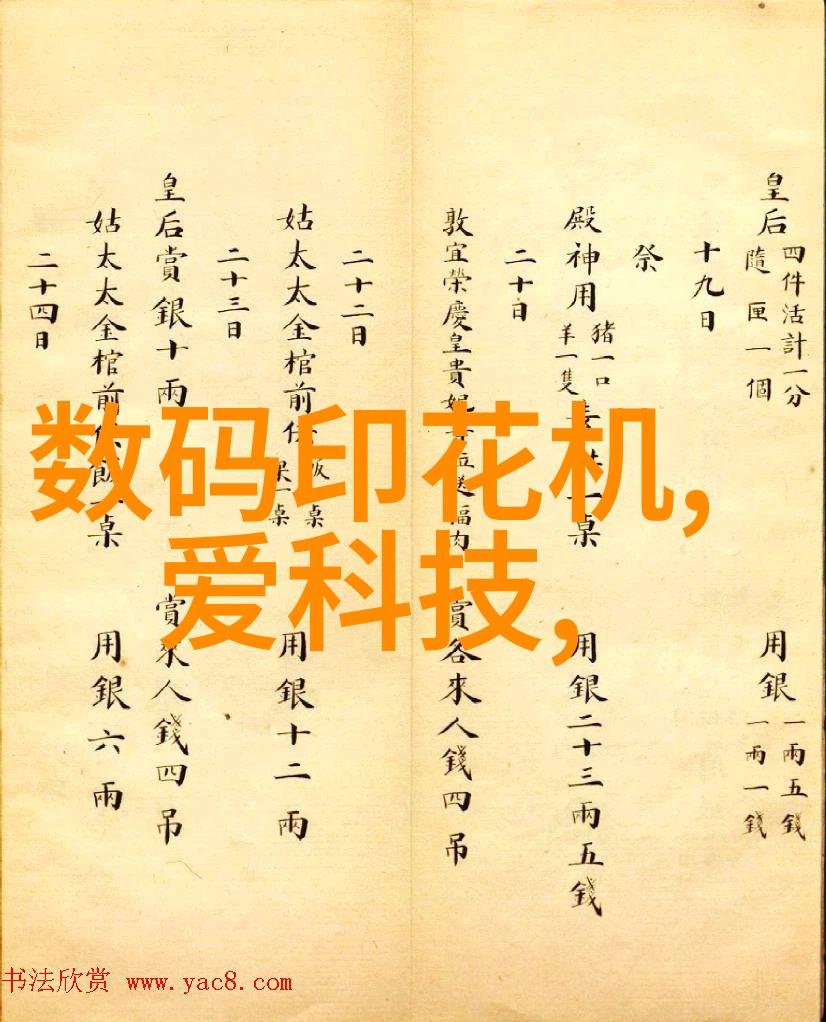 皇后 四件活計一分 用銀 一兩五錢
隨匣一個 一兩一錢
十九日
祭
殿神用 豬一口 桌 用銀二十三兩五錢
羊一隻
二十日
敦宜榮慶皇貴妃 送福肉 賞各來人錢四吊
二十二日
姑太太金棺前供 飯 桌 用銀十二兩
果一桌
二十三日
皇后賞銀十兩 賞來人錢四吊
姑太太金棺前供飯 桌 用銀六兩
二十四日
数码印花机,
爱科技,
书法欣赏 www.yac8.com